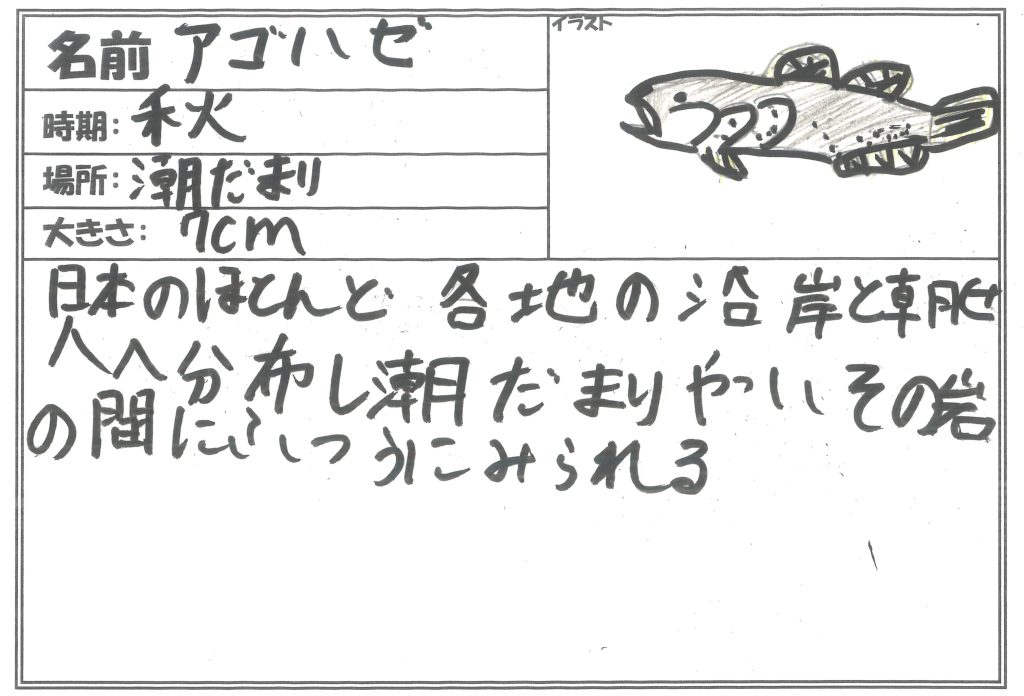 名前 アゴハゼ
イラスト
時期: 秋
場所: 潮だまり
大きさ: 7cm
日本のほとんど各地の沿岸と朝
へ分布し潮だまりやいその岩
の間にふつうにみられる